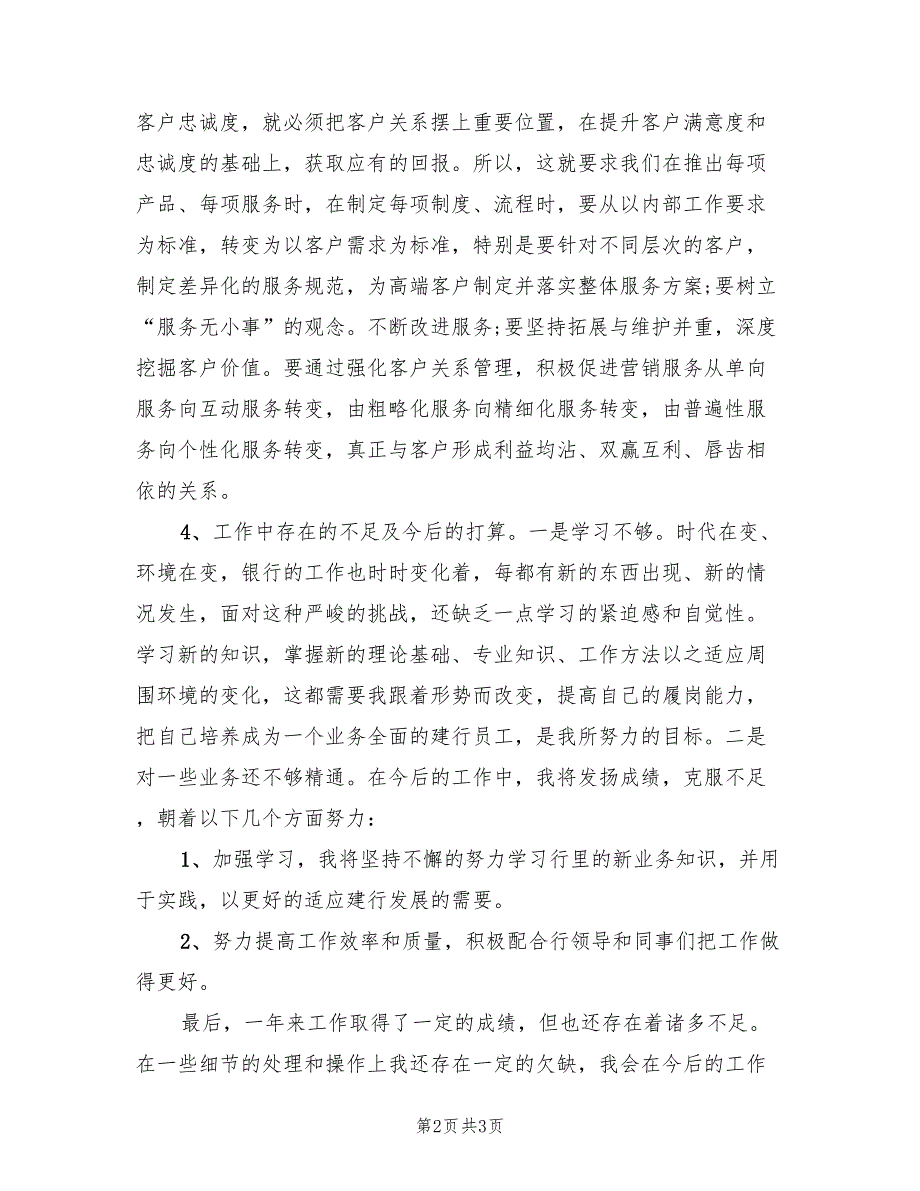 客户忠诚度，就必须把客户关系摆上重要位置，在提升客户满意度和
忠诚度的基础上，获取应有的回报。所以，这就要求我们在推出每项
产品、每项服务时，在制定每项制度、流程时，要从以内部工作要求
为标准，转变为以客户需求为标准，特别是要针对不同层次的客户，
制定差异化的服务规范，为高端客户制定并落实整体服务方案;要树立
“服务无小事”的观念。不断改进服务;要坚持拓展与维护并重，深度
挖掘客户价值。要通过强化客户关系管理，积极促进营销服务从单向
服务向互动服务转变，由粗略化服务向精细化服务转变，由普遍性服
务向个性化服务转变，真正与客户形成利益均沾、双赢互利、唇齿相
依的关系。
4、工作中存在的不足及今后的打算。一是学习不够。时代在变、
环境在变，银行的工作也时时变化着，每都有新的东西出现、新的情
况发生，面对这种严峻的挑战，还缺乏一点学习的紧迫感和自觉性。
学习新的知识，掌握新的理论基础、专业知识、工作方法以之适应周
围环境的变化，这都需要我跟着形势而改变，提高自己的履岗能力，
把自己培养成为一个业务全面的建行员工，是我所努力的目标。二是
对一些业务还不够精通。在今后的工作中，我将发扬成绩，克服不足
，朝着以下几个方面努力：
1、加强学习，我将坚持不懈的努力学习行里的新业务知识，并用
于实践，以更好的适应建行发展的需要。
2、努力提高工作效率和质量，积极配合行领导和同事们把工作做
得更好。
最后，一年来工作取得了一定的成绩，但也还存在着诸多不足。
在一些细节的处理和操作上我还存在一定的欠缺，我会在今后的工作
第2页 共3页